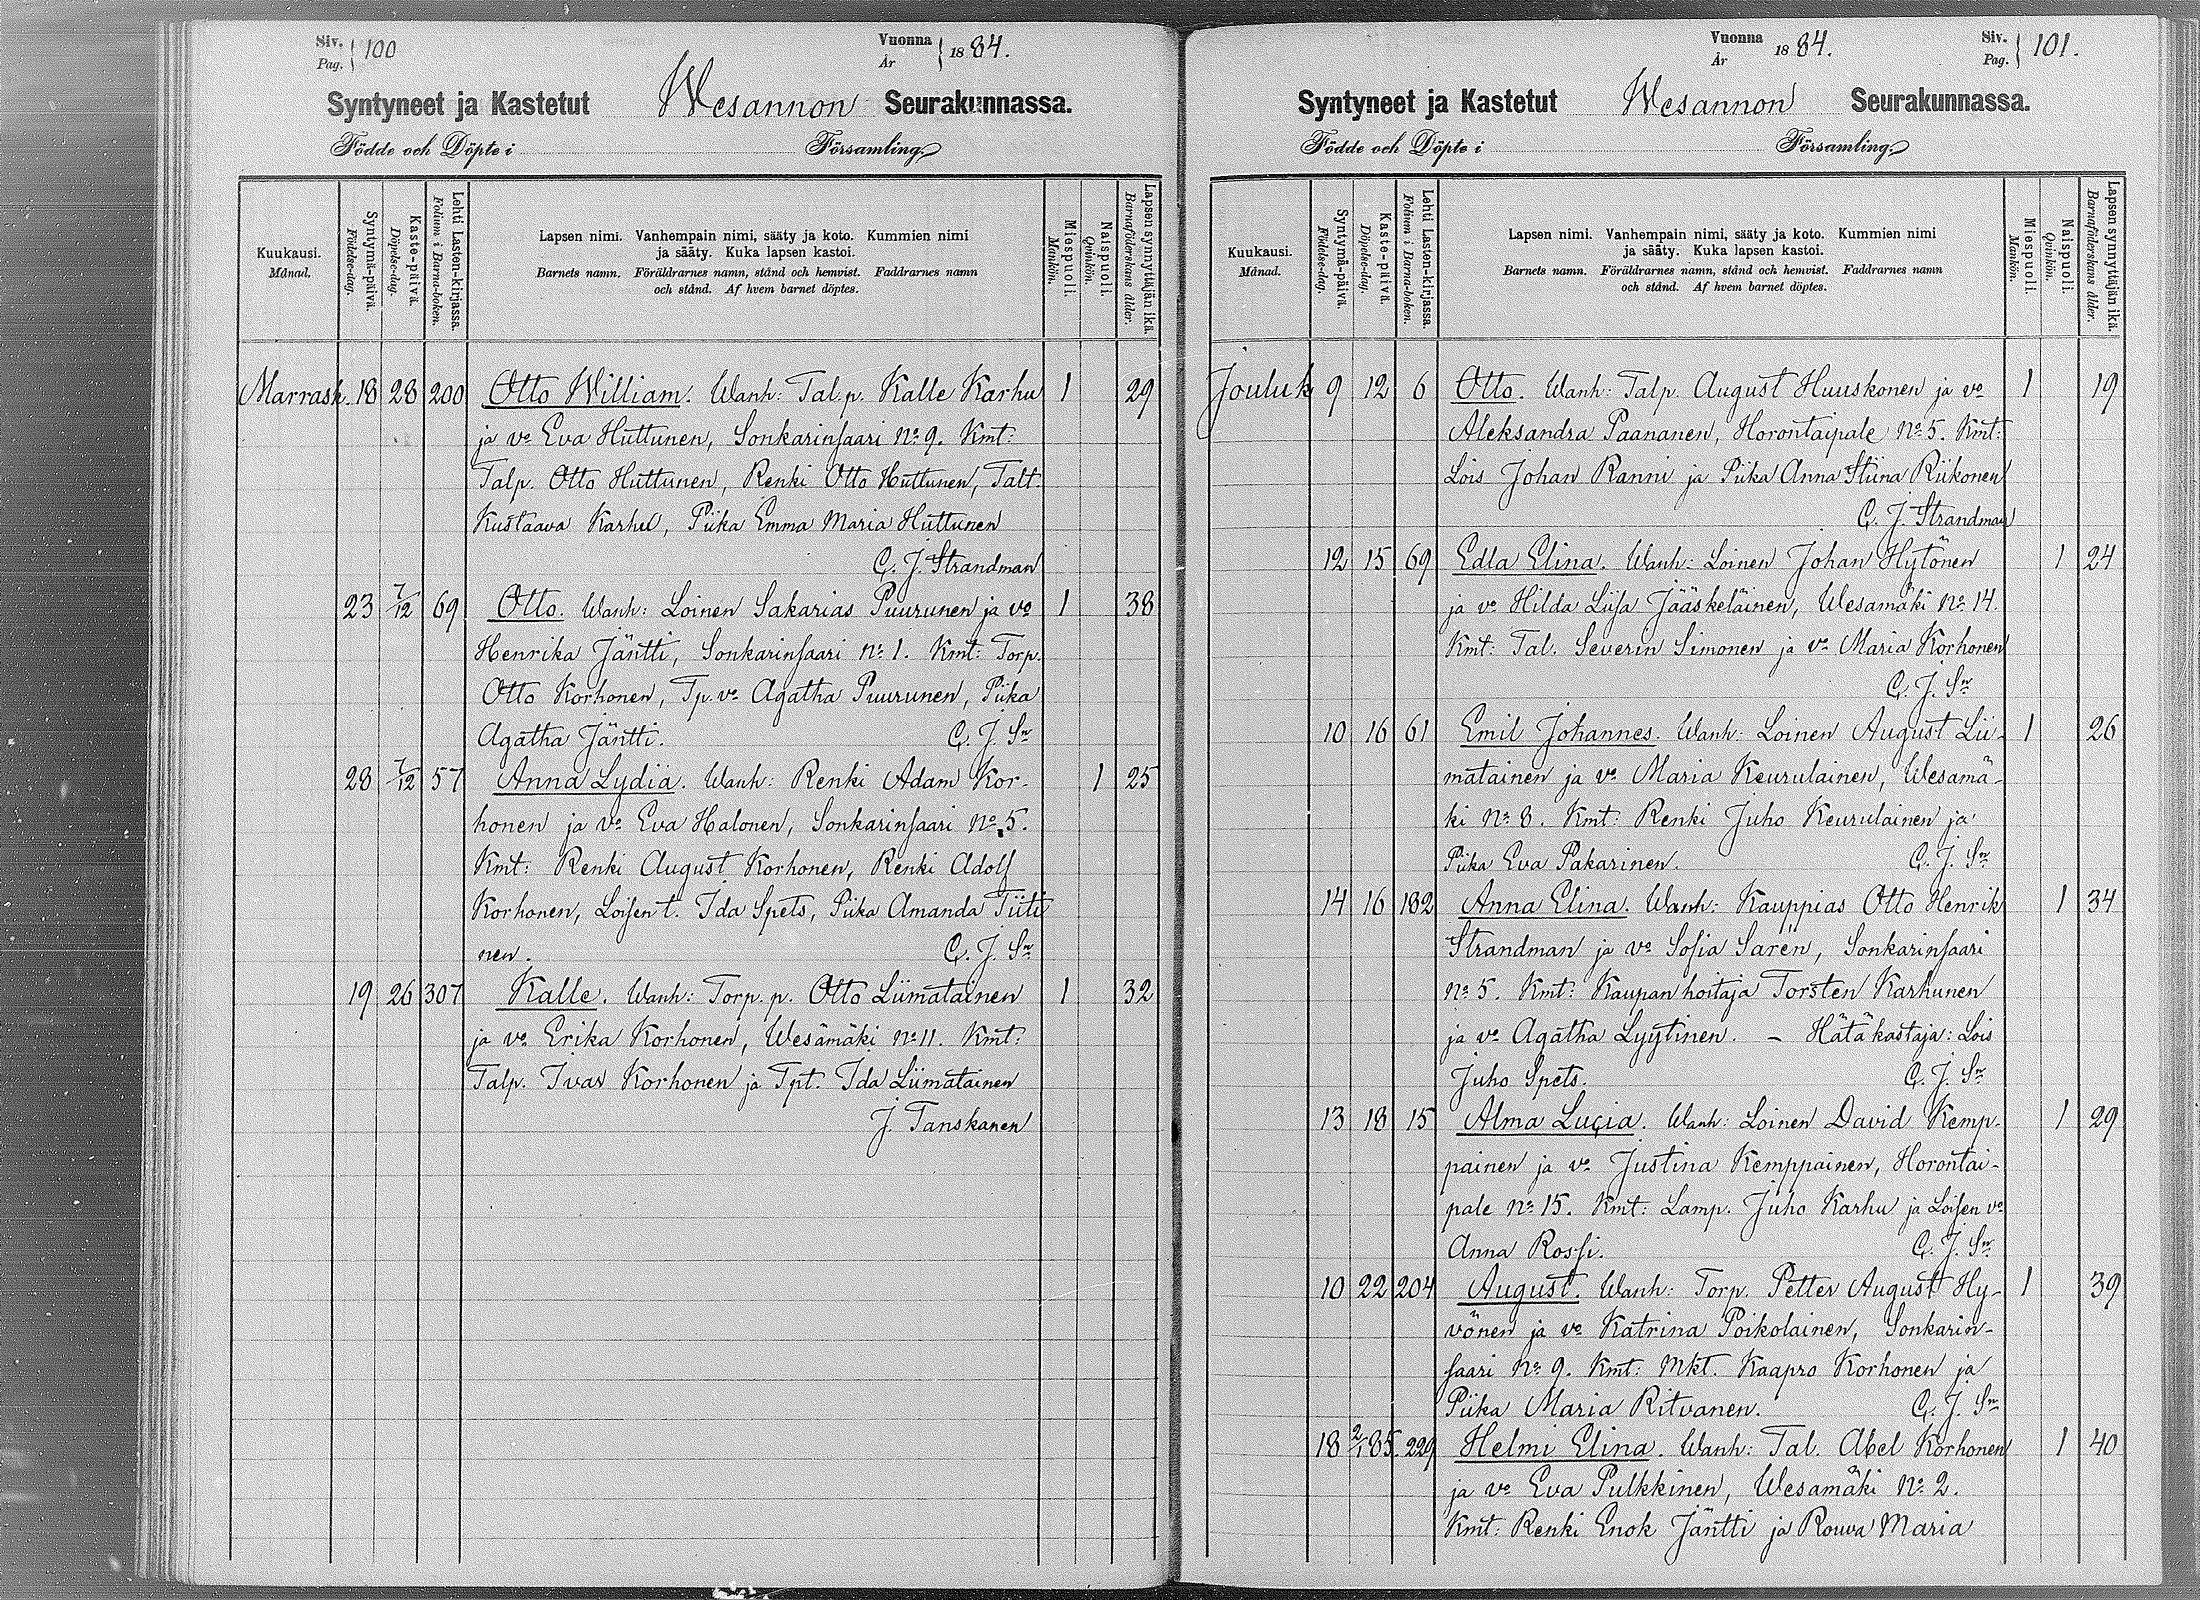 Siv. Pag. } 100
Vuonna År } 1884.
Syntyneet ja Kastetut Wesannon Seurakunnassa.
Födde och Döpte i Församling.
Kuukausi. Månad.
Syntymä-päivä. Födelse-dag.
Kaste-päivä. Döpelse-dag.
Lehti Lasten-kirjassa. Folium i Barna-boken.
Lapsen nimi. Vanhempain nimi, sääty ja koto. Kummien nimi
ja sääty. Kuka lapsen kastoi.
Barnets namn. Föräldrarnes namn, stånd och hemvist. Faddrarnes namn
och stånd. Af hvem barnet döptes.
Miespuoli. Mankön.
Naispuoli. Qvinkön.
Lapsen synnyttäjän ikä. Barnaföderskans ålder.
Marrask. 18 28 200 Otto William. Wanh: Tal.p. Kalle Karhu 1 29
ja vo Eva Huttunen, Sonkarinsaari No 9. Kmt:
Talp. Otto Huttunen, Renki Otto Huttunen, Talt.
Kustaava Karhu, Piika Emma Maria Huttunen
C. J. Strandman
23 7/12 69 Otto. Wanh: Loinen Sakarias Puurunen ja vo 1 38
Henrika Jäntti, Sonkarinsaari No 1. Kmt: Torp.
Otto Korhonen, Tp. vo Agatha Puurunen, Piika
Agatha Jäntti. C. J. Sn
28 7/12 57 Anna Lydia. Wanh: Renki Adam Kor- 1 25
honen ja vo Eva Halonen, Sonkarinsaari No 5.
Kmt: Renki August Korhonen, Renki Adolf
Korhonen, Loisen t. Ida Spets, Piika Amanda Tiiti
nen. C. J. Sn
19 26 307 Kalle. Wanh: Torp. p. Otto Liimatainen 1 32
ja vo Erika Korhonen, Wesämäki No 11. Kmt:
Talp. Ivar Korhonen ja Tpt. Ida Liimatainen
J. Tanskanen
Vuonna År 1884.
Siv. Pag. } 101.
Syntyneet ja Kastetut Wesannon Seurakunnassa.
Födde och Döpte i Församling.
Kuukausi. Månad.
Syntymä-päivä. Födelse-dag.
Kaste-päivä. Döpelse-dag.
Lehti Lasten-kirjassa. Folium i Barna-boken.
Lapsen nimi. Vanhempain nimi, sääty ja koto. Kummien nimi
ja sääty. Kuka lapsen kastoi.
Barnets namn. Föräldrarnes namn, stånd och hemvist. Faddrarnes namn
och stånd. Af hvem barnet döptes.
Miespuoli. Mankön.
Naispuoli. Qvinkön.
Lapsen synnyttäjän ikä. Barnaföderskans ålder.
Jouluk 9 12 6 Otto. Wanh: Talp. August Huuskonen ja vo 1 19
Aleksandra Paananen, Horontaipale No 5. Kmt:
Lois Johan Ranni ja Piika Anna Stiina Riikonen
C. J. Strandman
12 15 69 Edla Elina. Wanh: Loinen Johan Hytönen 1 24
ja vo Hilda Liisa Jääskeläinen, Wesamäki No 14.
Kmt: Tal. Severin Simonen ja vo Maria Korhonen
C. J. Sn
10 16 61 Emil Johannes. Wanh: Loinen August Lii- 1 26
matainen ja vo Maria Keurulainen, Wesamä-
ki No 8. Kmt: Renki Juho Keurulainen ja
Piika Eva Pakarinen. C. J. Sn
14 16 182 Anna Elina. Wanh: Kauppias Otto Henrik 1 34
Strandman ja vo Sofia Sarén, Sonkarinsaari
No 5. Kmt: Kaupanhoitaja Torsten Karhunen
ja vo Agatha Lyytinen. – Hätäkastaja: Lois
Juho Spets. C. J. Sn
13 18 15 Alma Lucia. Wanh: Loinen David Kemp- 1 29
painen ja vo Justina Kemppainen, Horontai-
pale No 15. Kmt: Lamp. Juho Karhu ja Loisen vo
Anna Rossi. C. J. Sn
10 22 204 August. Wanh: Torp. Petter August Hy- 1 39
vönen ja vo Katrina Poikolainen, Sonkarin-
saari No 9. Kmt: Mkt. Kaapro Korhonen ja
Piika Maria Ritvanen. C. J. Sn
18 2/1 85. 229 Helmi Elina. Wanh: Tal. Abel Korhonen 1 40
ja vo Eva Pulkkinen, Wesamäki No 2.
Kmt: Renki Enok Jäntti ja Rouva Maria